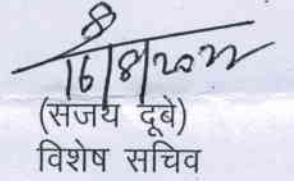 16/8/2022
(संजय दूबे)
विशेष सचिव